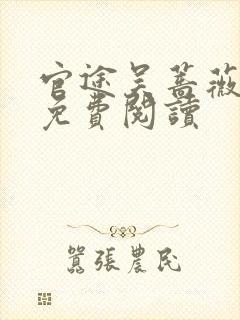 官途吴蔷薇
免費閱讀
囂張農民